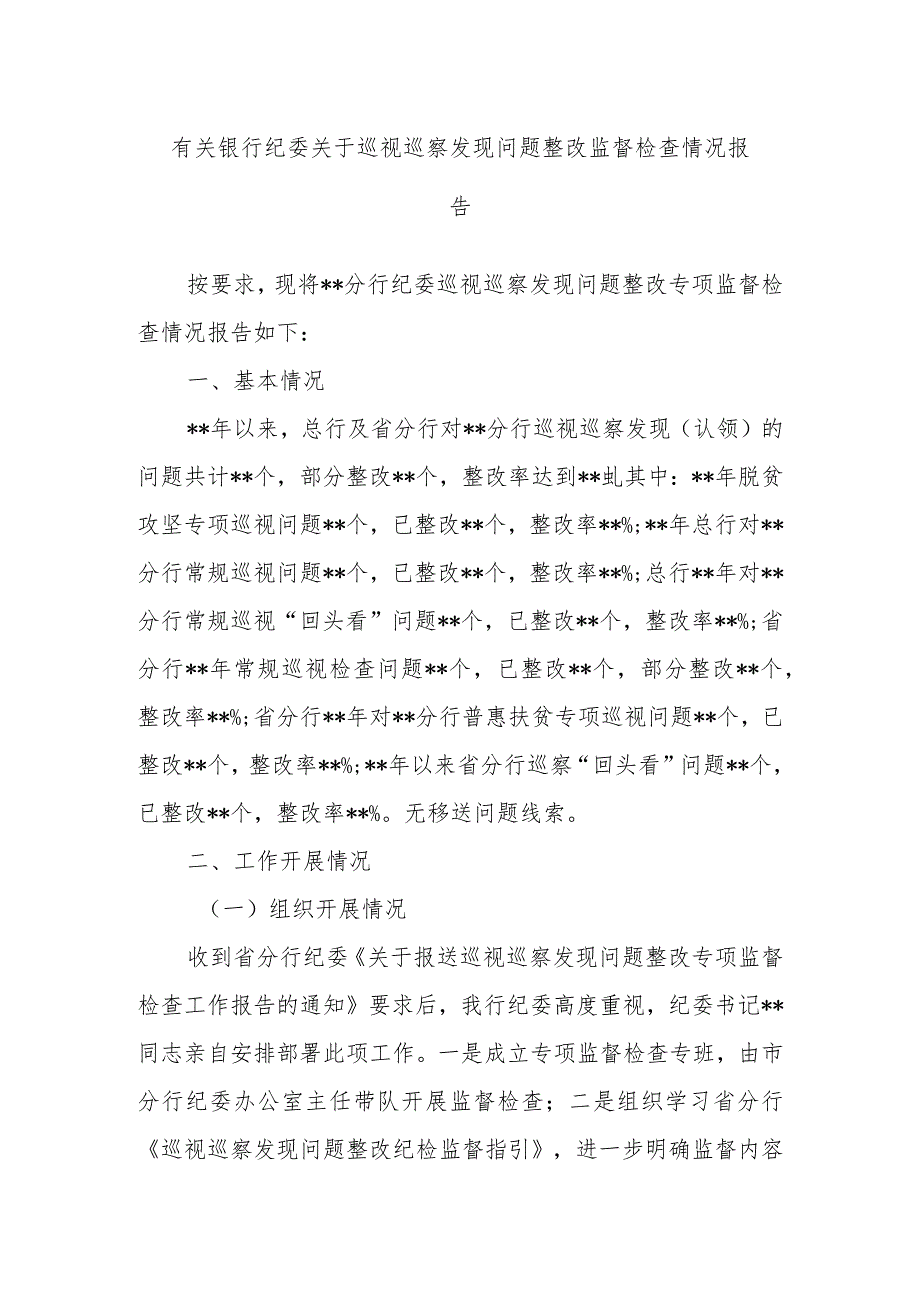 有关银行纪委关于巡视巡察发现问题整改监督检查情况报
告
按要求，现将**分行纪委巡视巡察发现问题整改专项监督检
查情况报告如下：
一、基本情况
**年以来，总行及省分行对**分行巡视巡察发现（认领）的
问题共计**个，部分整改**个，整改率达到**虬其中：**年脱贫
攻坚专项巡视问题**个，已整改**个，整改率**%;**年总行对**
分行常规巡视问题**个，已整改**个，整改率**%;总行**年对**
分行常规巡视“回头看”问题**个，已整改**个，整改率**%;省
分行**年常规巡视检查问题**个，已整改**个，部分整改**个，
整改率**%;省分行**年对**分行普惠扶贫专项巡视问题**个，已
整改**个，整改率**%;**年以来省分行巡察“回头看”问题**个，
已整改**个，整改率**%。无移送问题线索。
二、工作开展情况
（一）组织开展情况
收到省分行纪委《关于报送巡视巡察发现问题整改专项监督
检查工作报告的通知》要求后，我行纪委高度重视，纪委书记**
同志亲自安排部署此项工作。一是成立专项监督检查专班，由市
分行纪委办公室主任带队开展监督检查；二是组织学习省分行
《巡视巡察发现问题整改纪检监督指引》，进一步明确监督内容